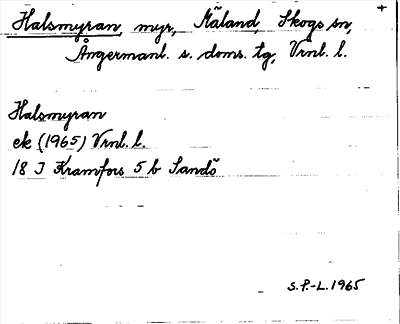 Halsmyran, myr, Mäland, Skogs sn,
Ångermanl. s. doms. tg, Vrnl. l.
Halsmyran
ek (1965) Vrnl. l.
18 I Kramfors 5 b Sandö
S.P.-L. 1965